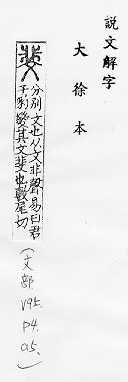 説文解字
大徐本
斐
分別文也从文非聲易曰君
子豹變其文斐也敷尾切
(文部
V95.
P4.
05.)